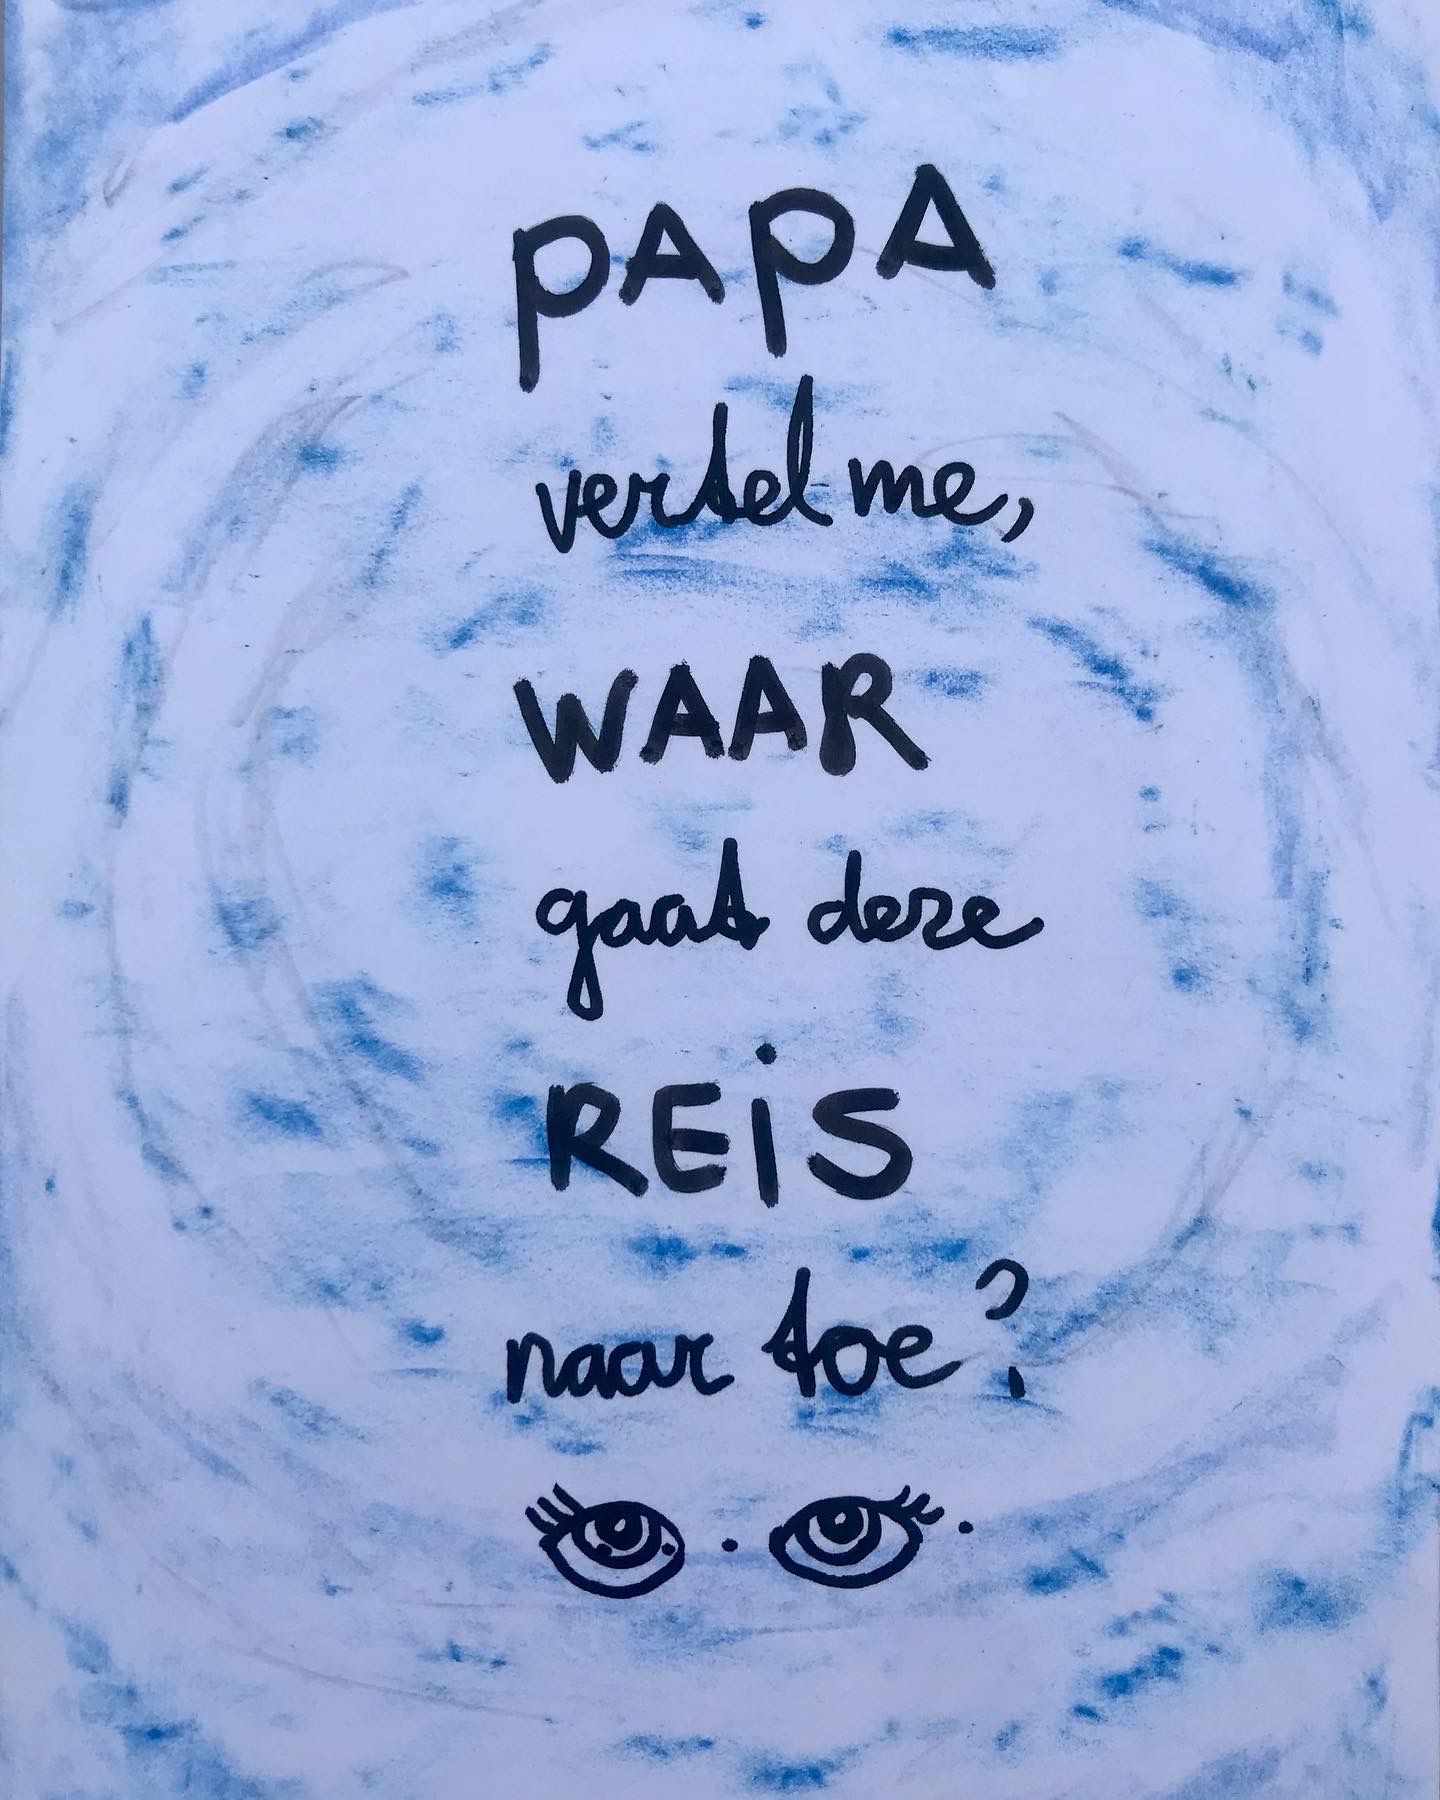 PAPA
vertel me,
WAAR
gaat deze
REiS
naar toe?